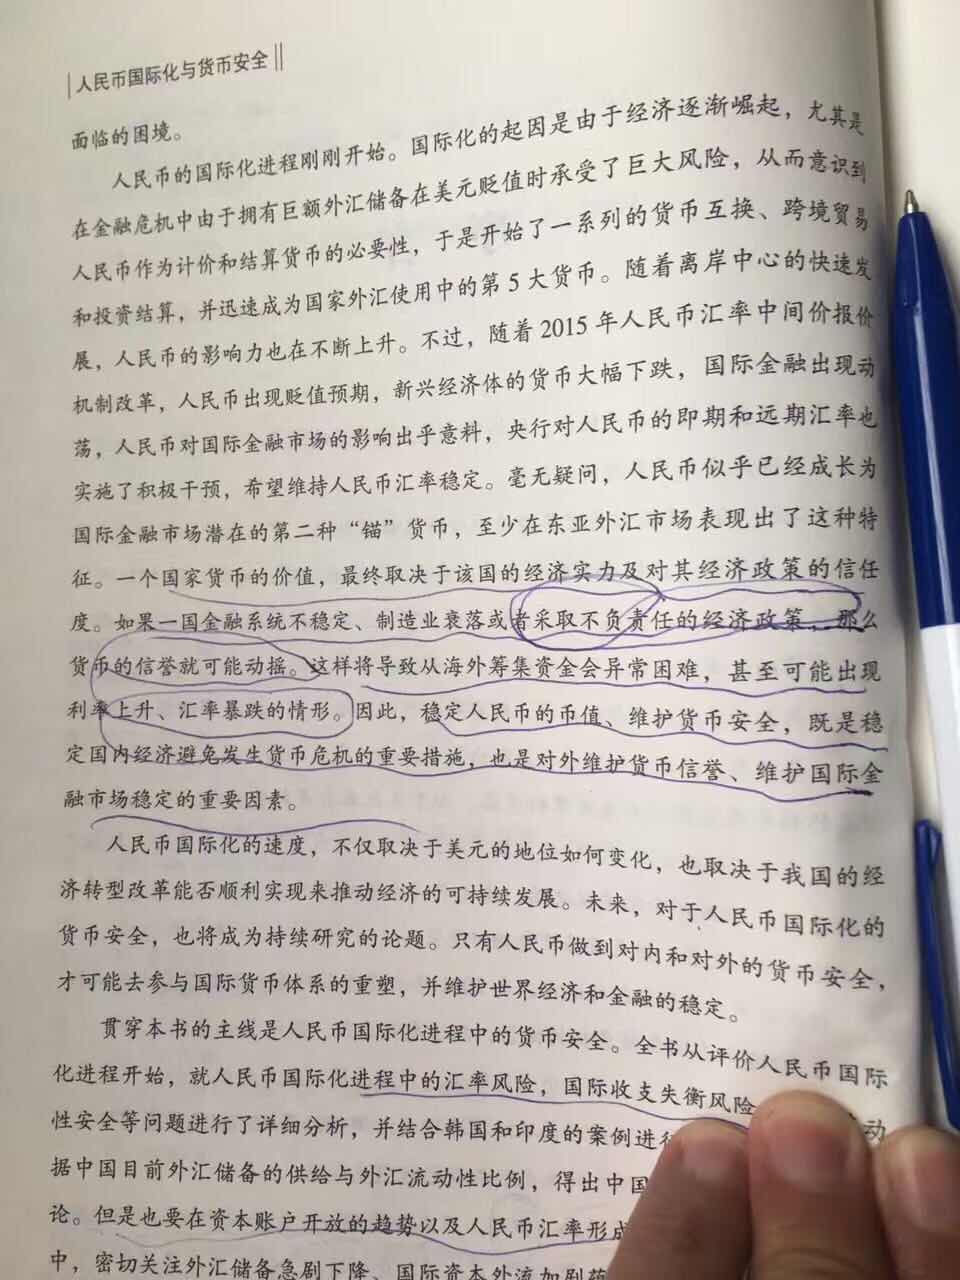 人民币国际化与货币安全
面临的困境。
人民币的国际化进程刚刚开始。国际化的起因是由于经济逐渐崛起，尤其是
在金融危机中由于拥有巨额外汇储备在美元贬值时承受了巨大风险，从而意识到
人民币作为计价和结算货币的必要性，于是开始了一系列的货币互换、跨境贸易
和投资结算，并迅速成为国家外汇使用中的第5大货币。随着离岸中心的快速发
展，人民币的影响力也在不断上升。不过，随着2015年人民币汇率中间价报价
机制改革，人民币出现贬值预期，新兴经济体的货币大幅下跌，国际金融出现动
荡，人民币对国际金融市场的影响出乎意料，央行对人民币的即期和远期汇率也
实施了积极干预，希望维持人民币汇率稳定。毫无疑问，人民币似乎已经成长为
国际金融市场潜在的第二种“锚”货币，至少在东亚外汇市场表现出了这种特
征。一个国家货币的价值，最终取决于该国的经济实力及对其经济政策的信任
度。如果一国金融系统不稳定、制造业衰落或者采取不负责任的经济政策，那么
货币的信誉就可能动摇。这样将导致从海外筹集资金会异常困难，甚至可能出现
利率上升、汇率暴跌的情形。因此，稳定人民币的币值、维护货币安全，既是稳
定国内经济避免发生货币危机的重要措施，也是对外维护货币信誉、维护国际金
融市场稳定的重要因素。
人民币国际化的速度，不仅取决于美元的地位如何变化，也取决于我国的经
济转型改革能否顺利实现来推动经济的可持续发展。未来，对于人民币国际化的
货币安全，也将成为持续研究的论题。只有人民币做到对内和对外的货币安全，
才可能去参与国际货币体系的重塑，并维护世界经济和金融的稳定。
贯穿本书的主线是人民币国际化进程中的货币安全。全书从评价人民币国际
化进程开始，就人民币国际化进程中的汇率风险，国际收支失衡风险
性安全等问题进行了详细分析，并结合韩国和印度的案例进行 动
据中国目前外汇储备的供给与外汇流动性比例，得出中国
论。但是也要在资本账户开放的趋势以及人民币汇率形成
中，密切关注外汇储备急剧下降、国际资本外流加剧